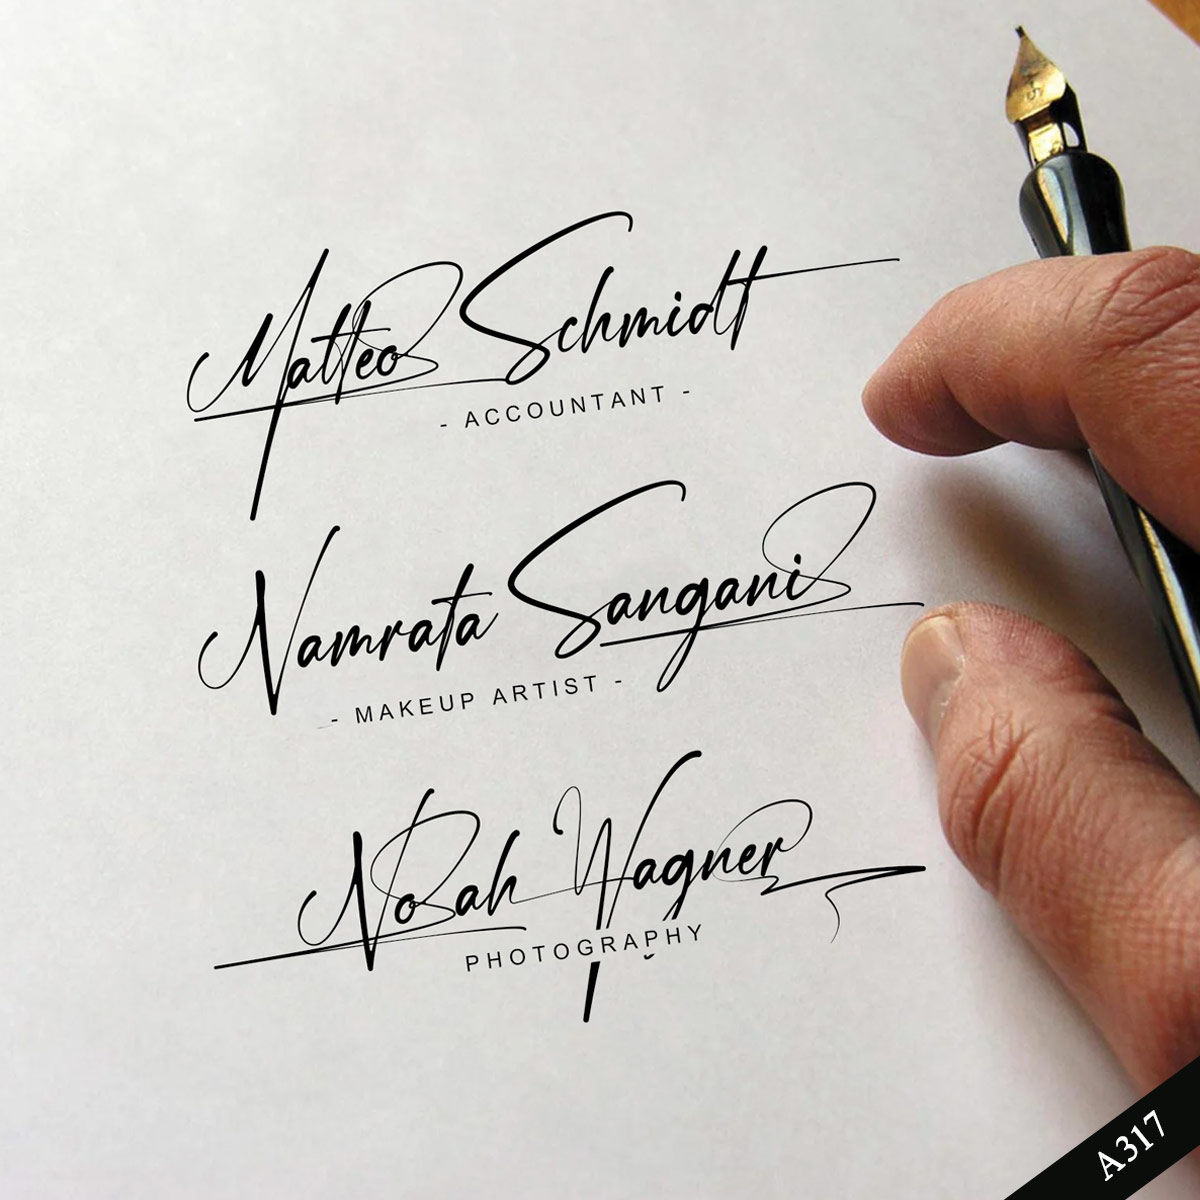 Matteo Schmidt
- ACCOUNTANT -
Namrata Sangani
- MAKEUP ARTIST -
Noah Wagner
PHOTOGRAPHY
A317